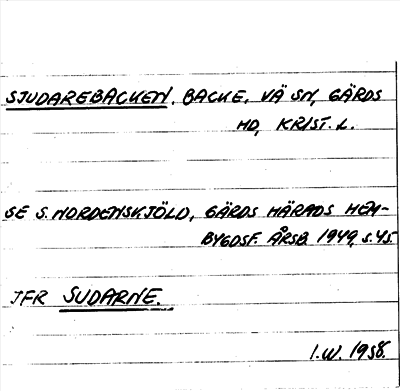 SJUDAREBACKEN. BACKE, VÄ SN, GÄRDS
HD, KRIST. L.
SE S. NORDENSKJÖLD, GÄRDS HÄRADS HEM-
BYGDSF. ÅRSB. 1949, S. 45.
JFR SUDARNE.
I.W. 1958.